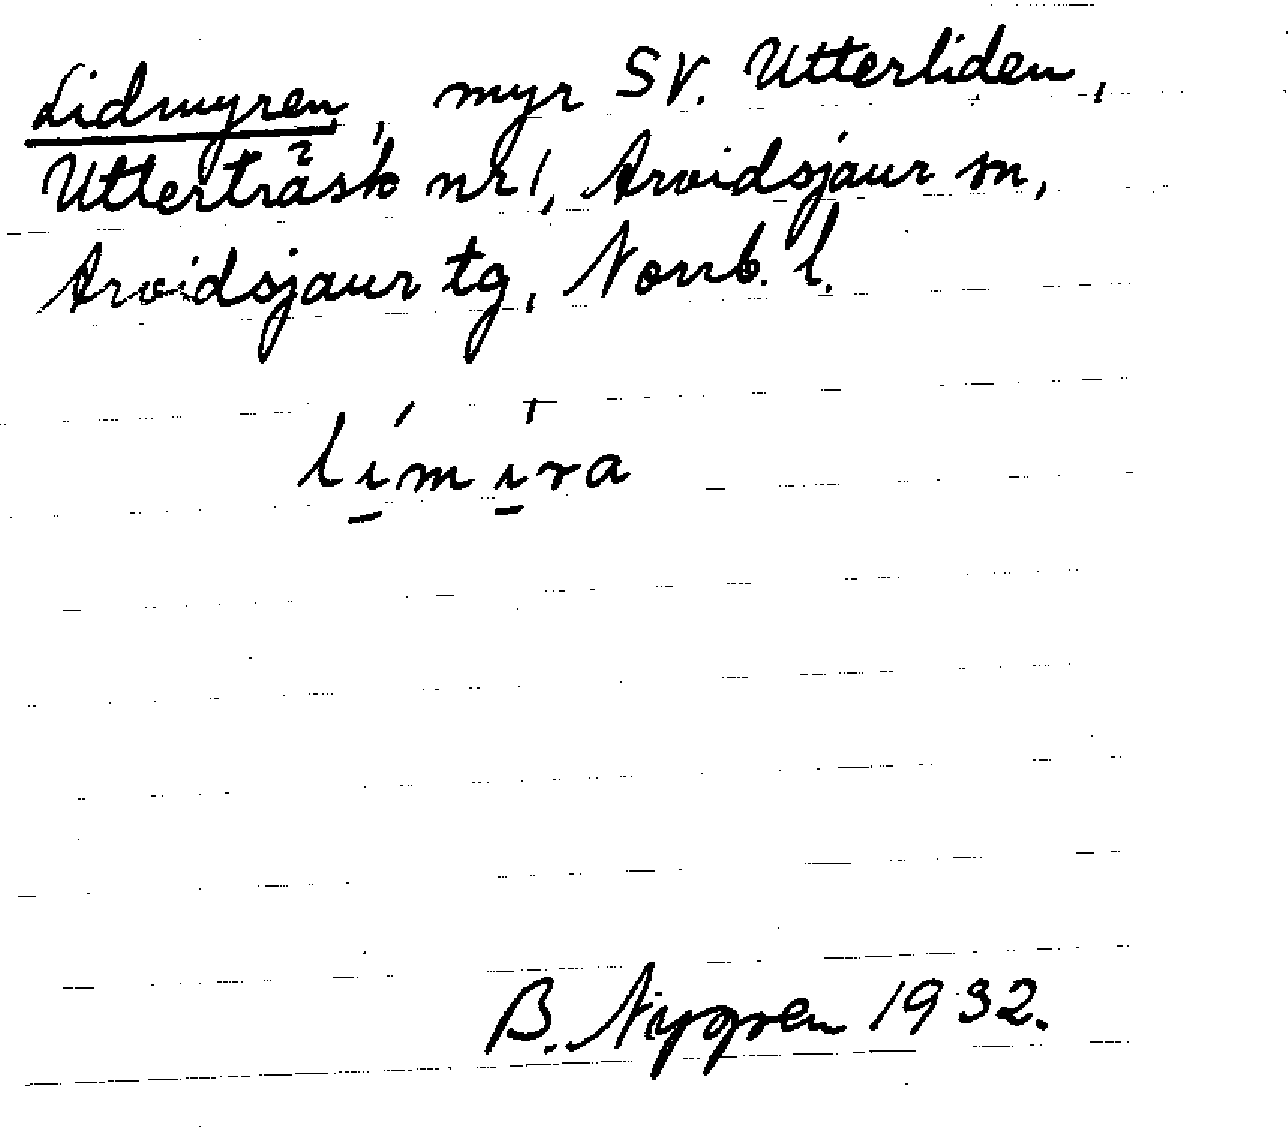 Lidmyren, myr SV. Utterliden,
Utterträsk nr 1, Arvidsjaur sn,
Arvidsjaur tg, Norrb. l.
B. Nygren 1932.